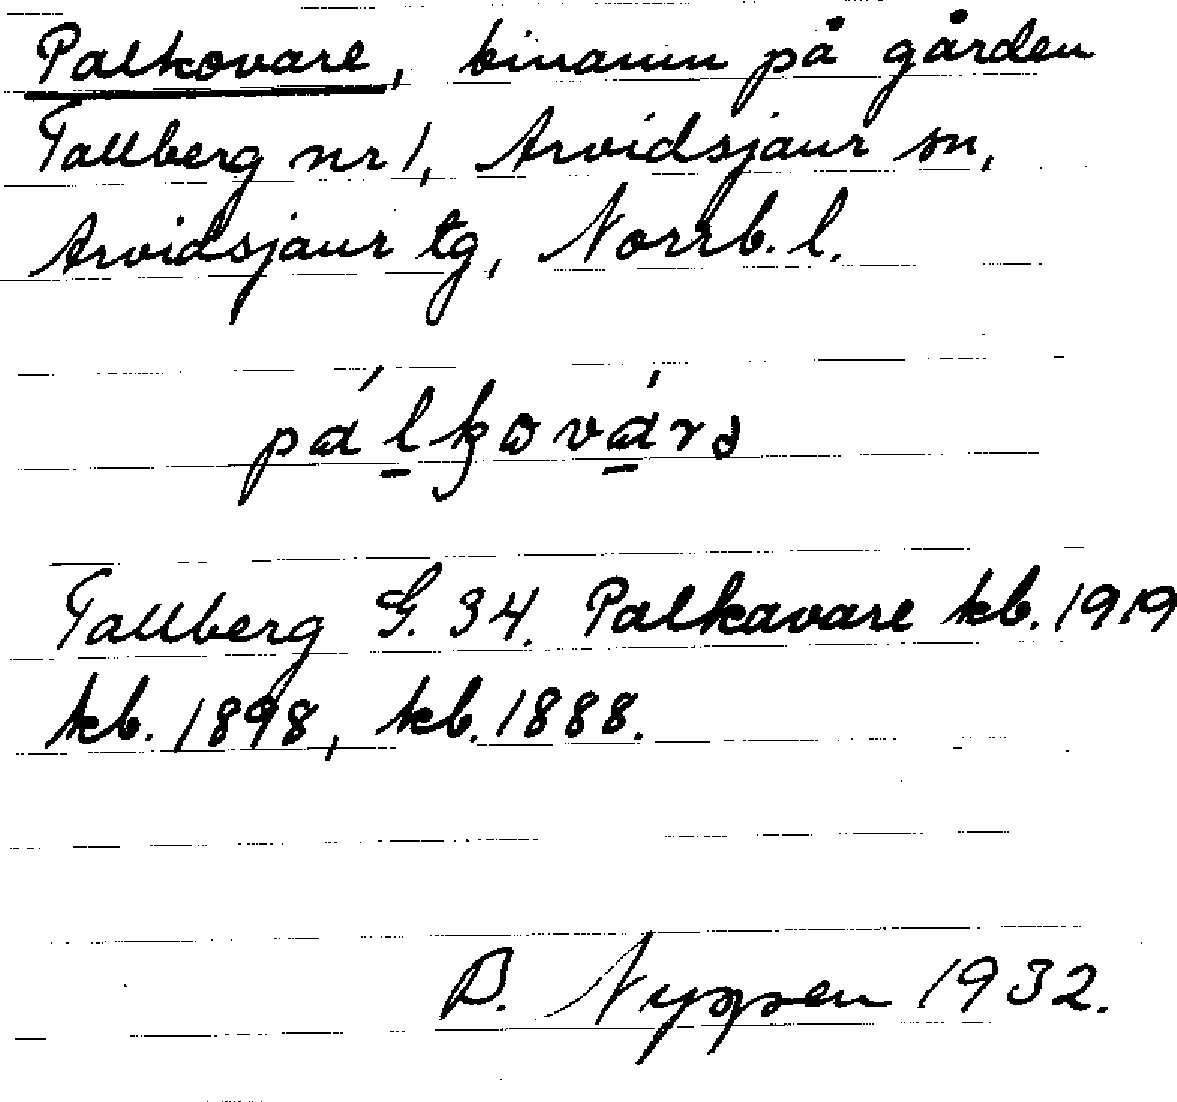 Palkovare, binamn på gården
Tallberg nr 1, Arvidsjaur sn,
Arvidsjaur tg, Norrb. l.
pálkovárə
Tallberg G. 34. Palkavare kb. 1919
kb. 1898, kb. 1888.
B. Nyppen 1932.